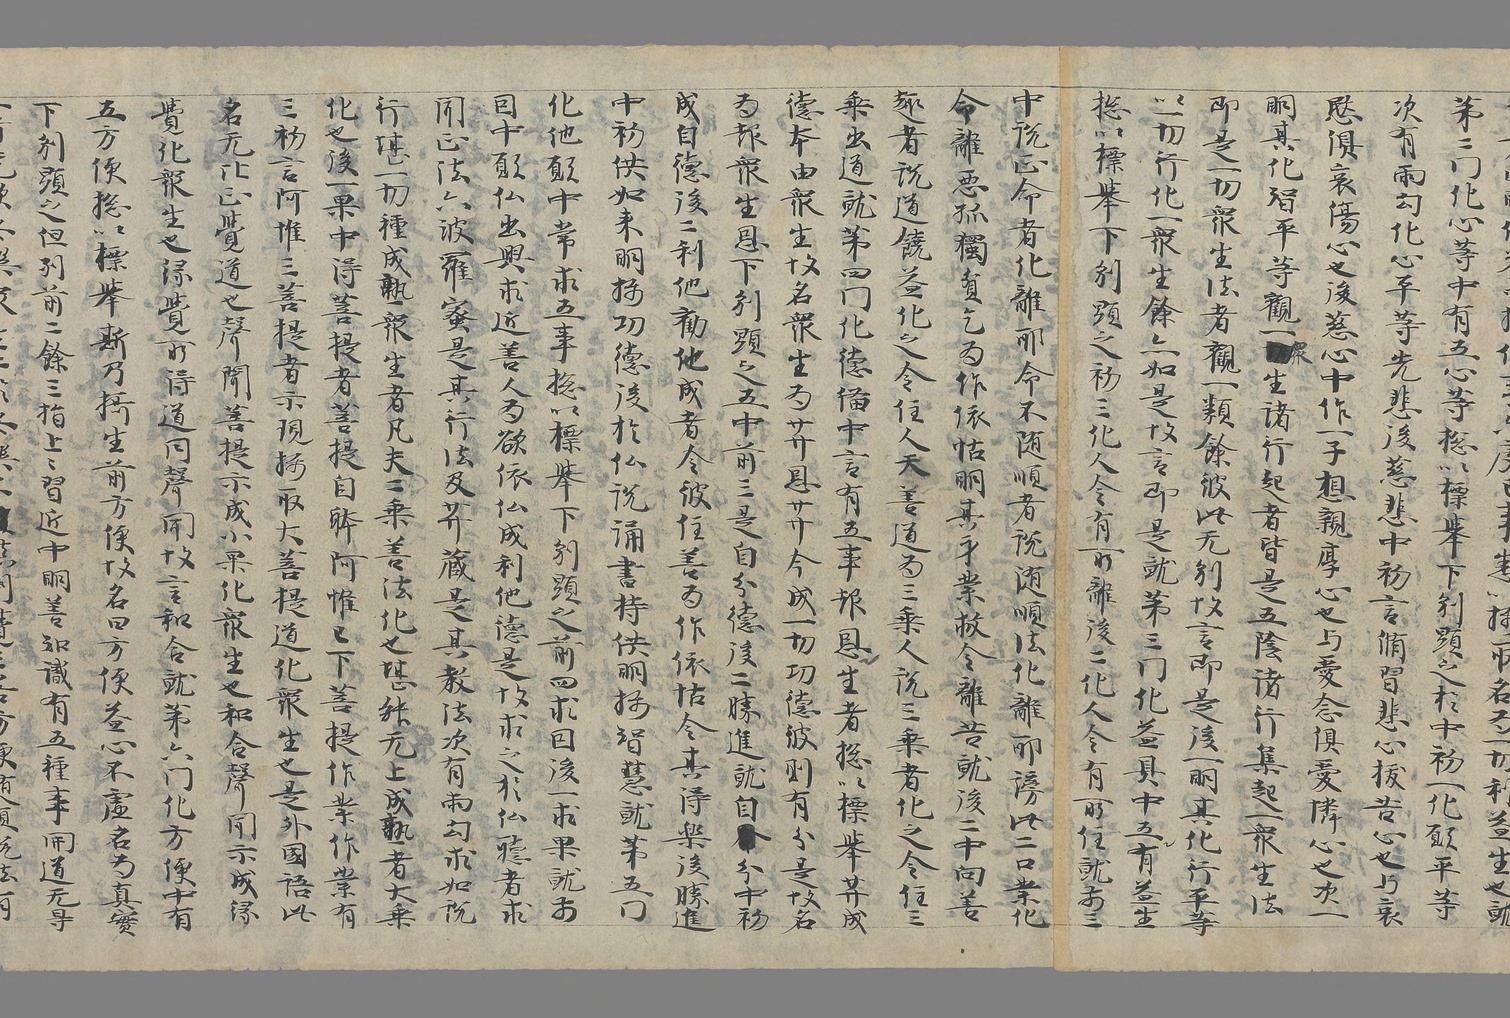 第二門化心等中有五心等捴以標舉下別顯之於中初一化願平等
次有兩句化心平等先悲後慈悲中初言脩習悲心拔苦心也与哀
愍俱哀傷心也後慈心中作一子想親厚心也与愛念俱憂隣心也次一
明其化智平等觀一衆生諸行起者皆是五陰諸行集起一衆生法
即是一切衆生法者觀一類餘彼此无別故言即是後一明其化行平等
以一切行化一衆生餘亦如是故言即是就第三門化益具中五有益生
捴以標舉下別顯之初三化人令有所離後二化人令有所住就前三
中說正命者化離邪命不随順者說随順法化離邪謗此二口業化
令離惡孤獨貧乞為作依怙明其身業救令離苦就後二中向善
趣者說道饒益化之令住人天善道為三乘人說三乘者化之令住三
乘出道就第四門化德備中言有五事報恩生者捴以標舉菩成
德本由衆生故名衆生為菩恩菩今成一切功德彼則有分是故名
為報衆生恩下別顯之五中前三是自分德後二勝進就自分中初
成自德後二利他勸他成者令彼住善為作依怙令其得樂後勝進
中初供如来明攝功德後於仏說誦書持供明攝智慧就第五門
化他願中常求五事捴以標舉下別顯之前四求因後一求果就前
因中願仏出興求近善人為欲依仏成利他德是故求之於仏聽者求
聞正法六波羅蜜是其行法及菩藏是其教法次有兩句求如說
行堪一切種成熟衆生者凡夫二乘善法化也堪能无上成熟者大乘
化也後一果中得菩提者菩提自躰阿惟已下菩提作業作業有
三初言阿惟三菩提者示現攝取大菩提道化衆生也是外國語此
名无比正覺道也聲聞菩提示成小果化衆生也和合聲聞示成緣
覺化衆生也緣覺所得道同聲聞故言和合就第六門化方便中有
五方便捴以標舉斯乃攝生前方便故名曰方便益心不虛名為真實
下別顯之但列前二餘三指上〻習近中明善知識有五種事開道无导